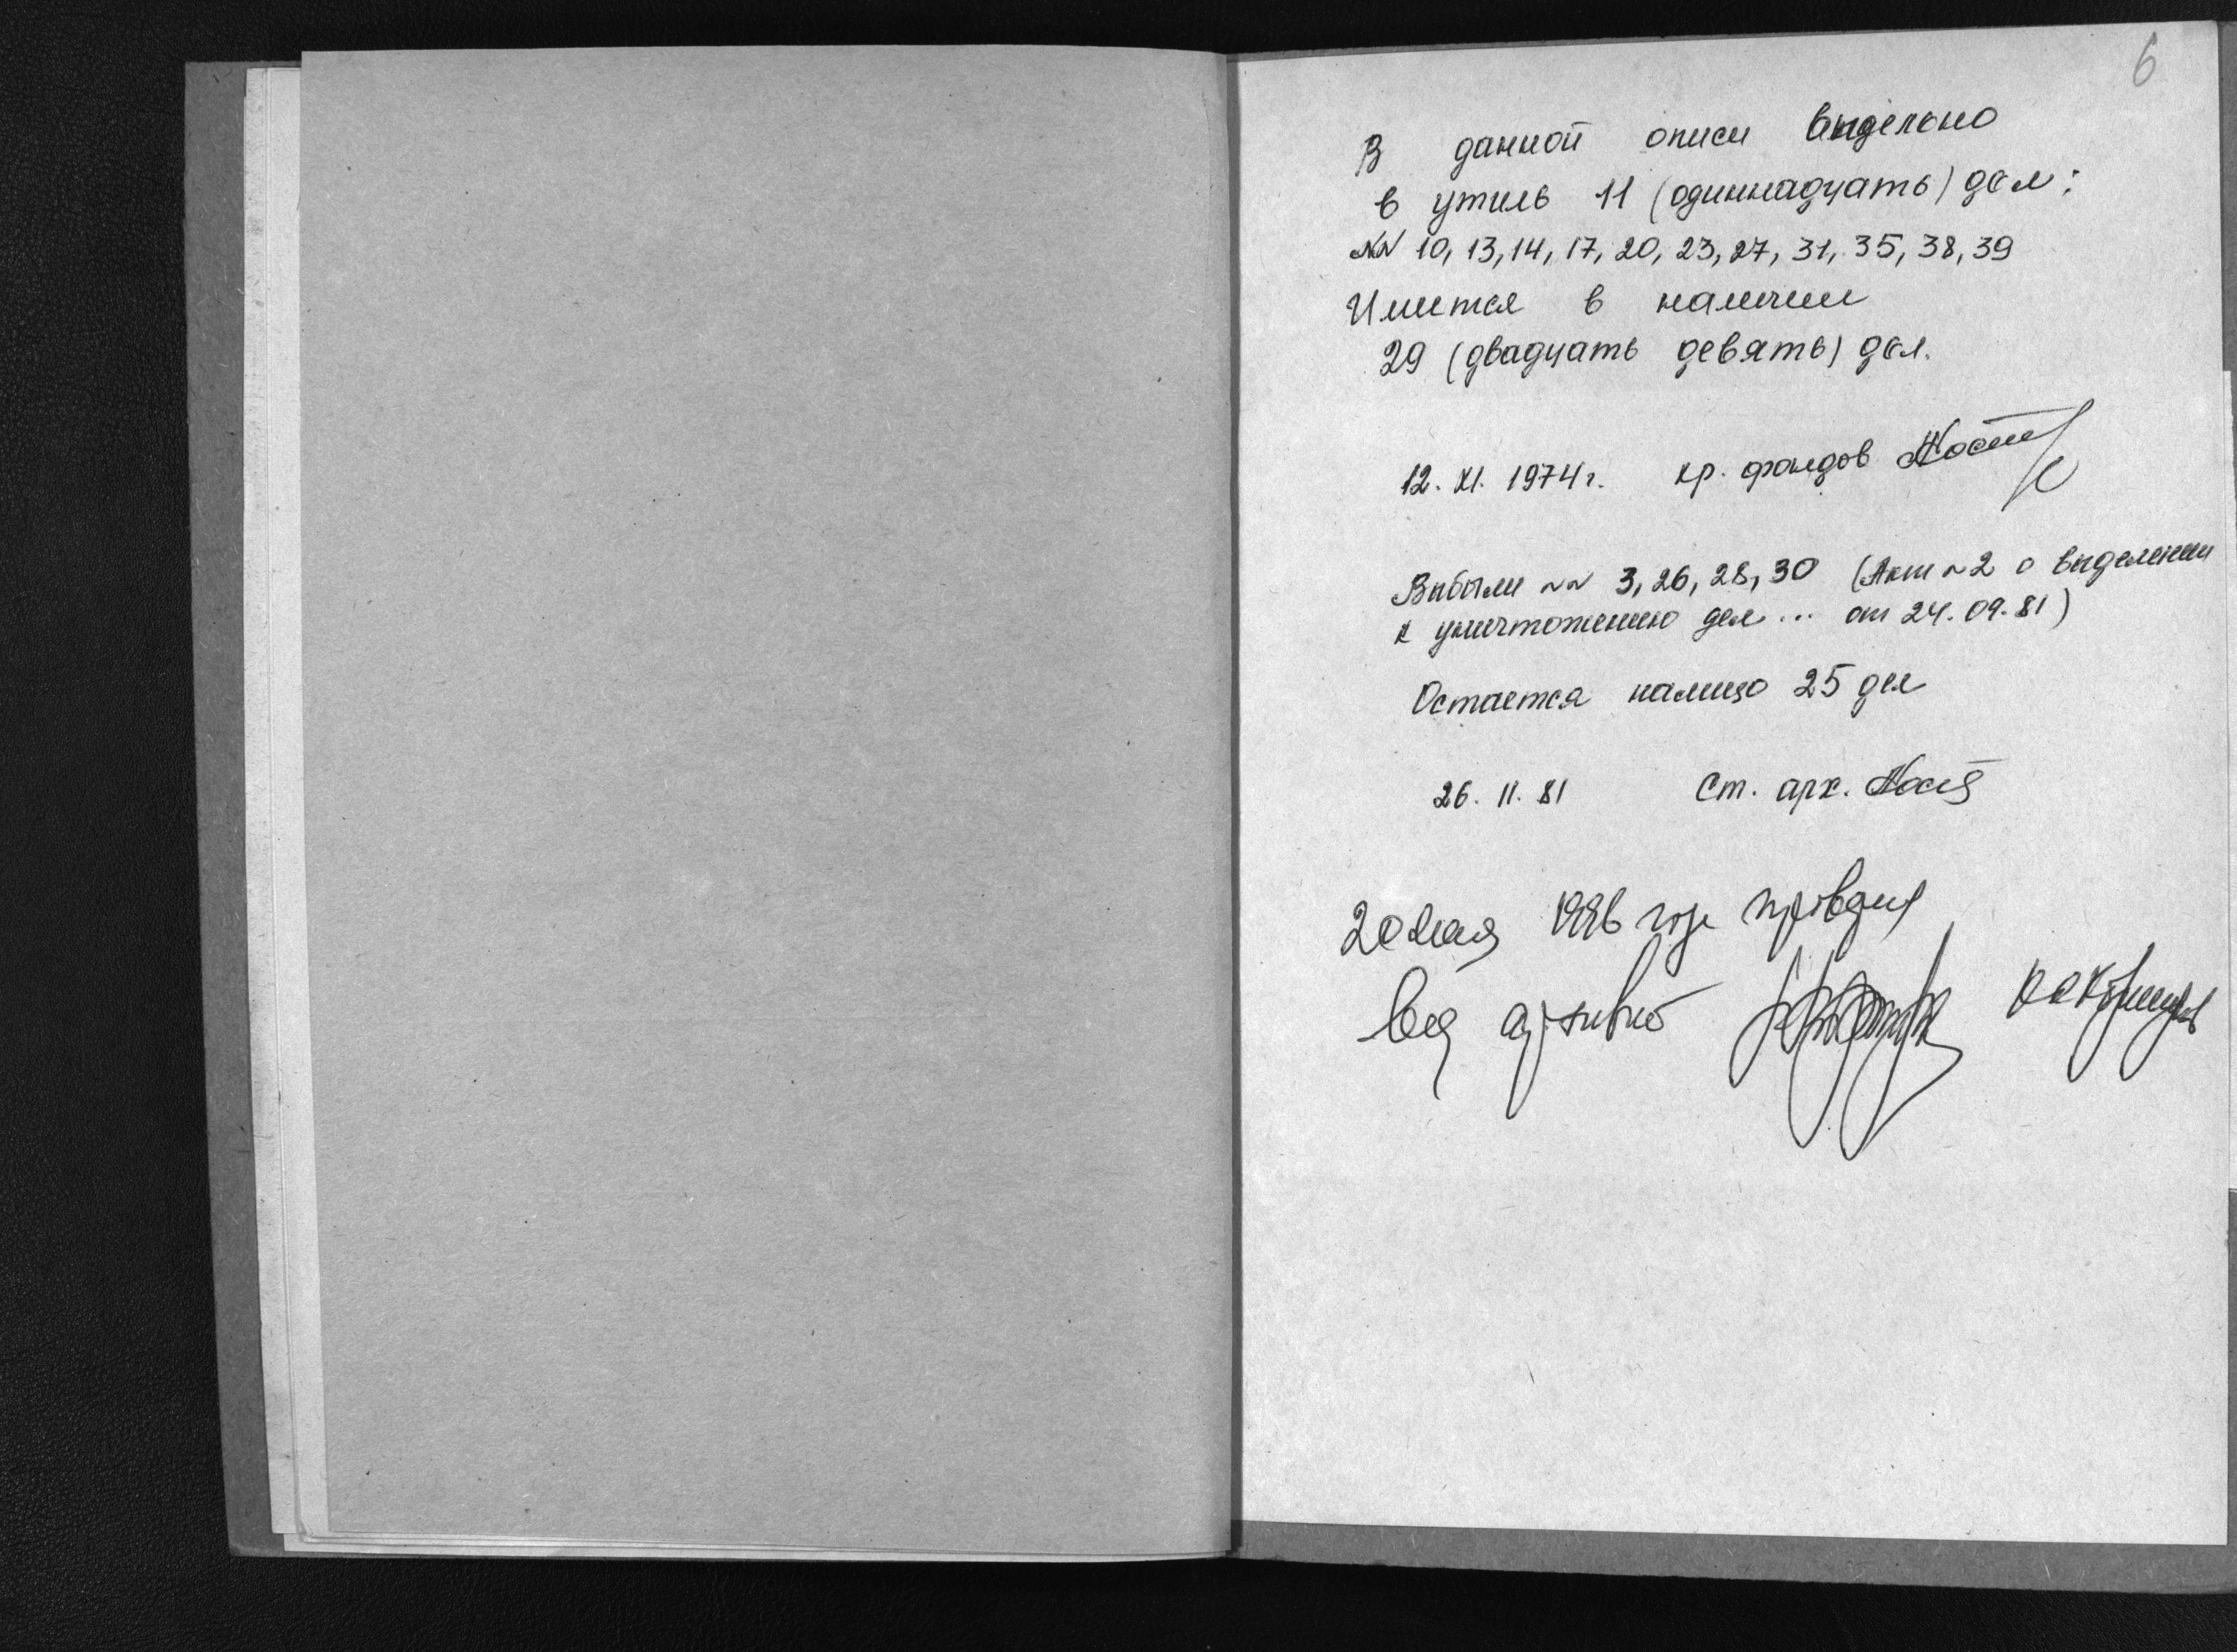 6
В данной описи выделено
в утиль 11 (одиннадцать) дел:
№№ 10, 13, 14, 17, 20, 23, 27, 31, 35, 38, 39
Имется в наличии
29 (двадцать девять) дел.
12. XI. 1974 г. хр. фондов
Выбыли №№ 3, 26, 28, 30 (Акт №2 о выделении
к уничтожению дел... от 24.09.81)
Остается налицо 25 дел
26. 11. 81 Ст. арх.
20 мая 1996 года
Вед архивист